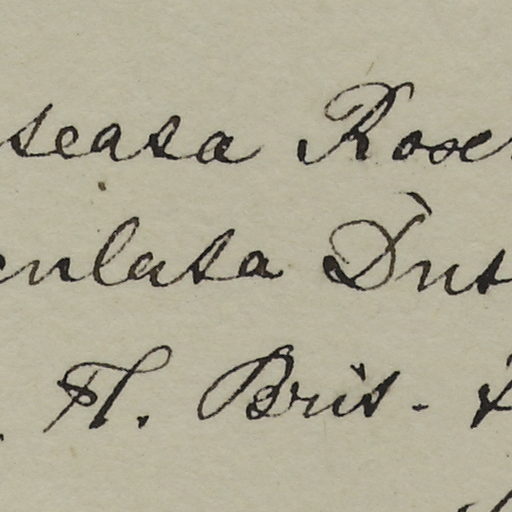 seasa Rose
culata Dus
Fl. Brit. -